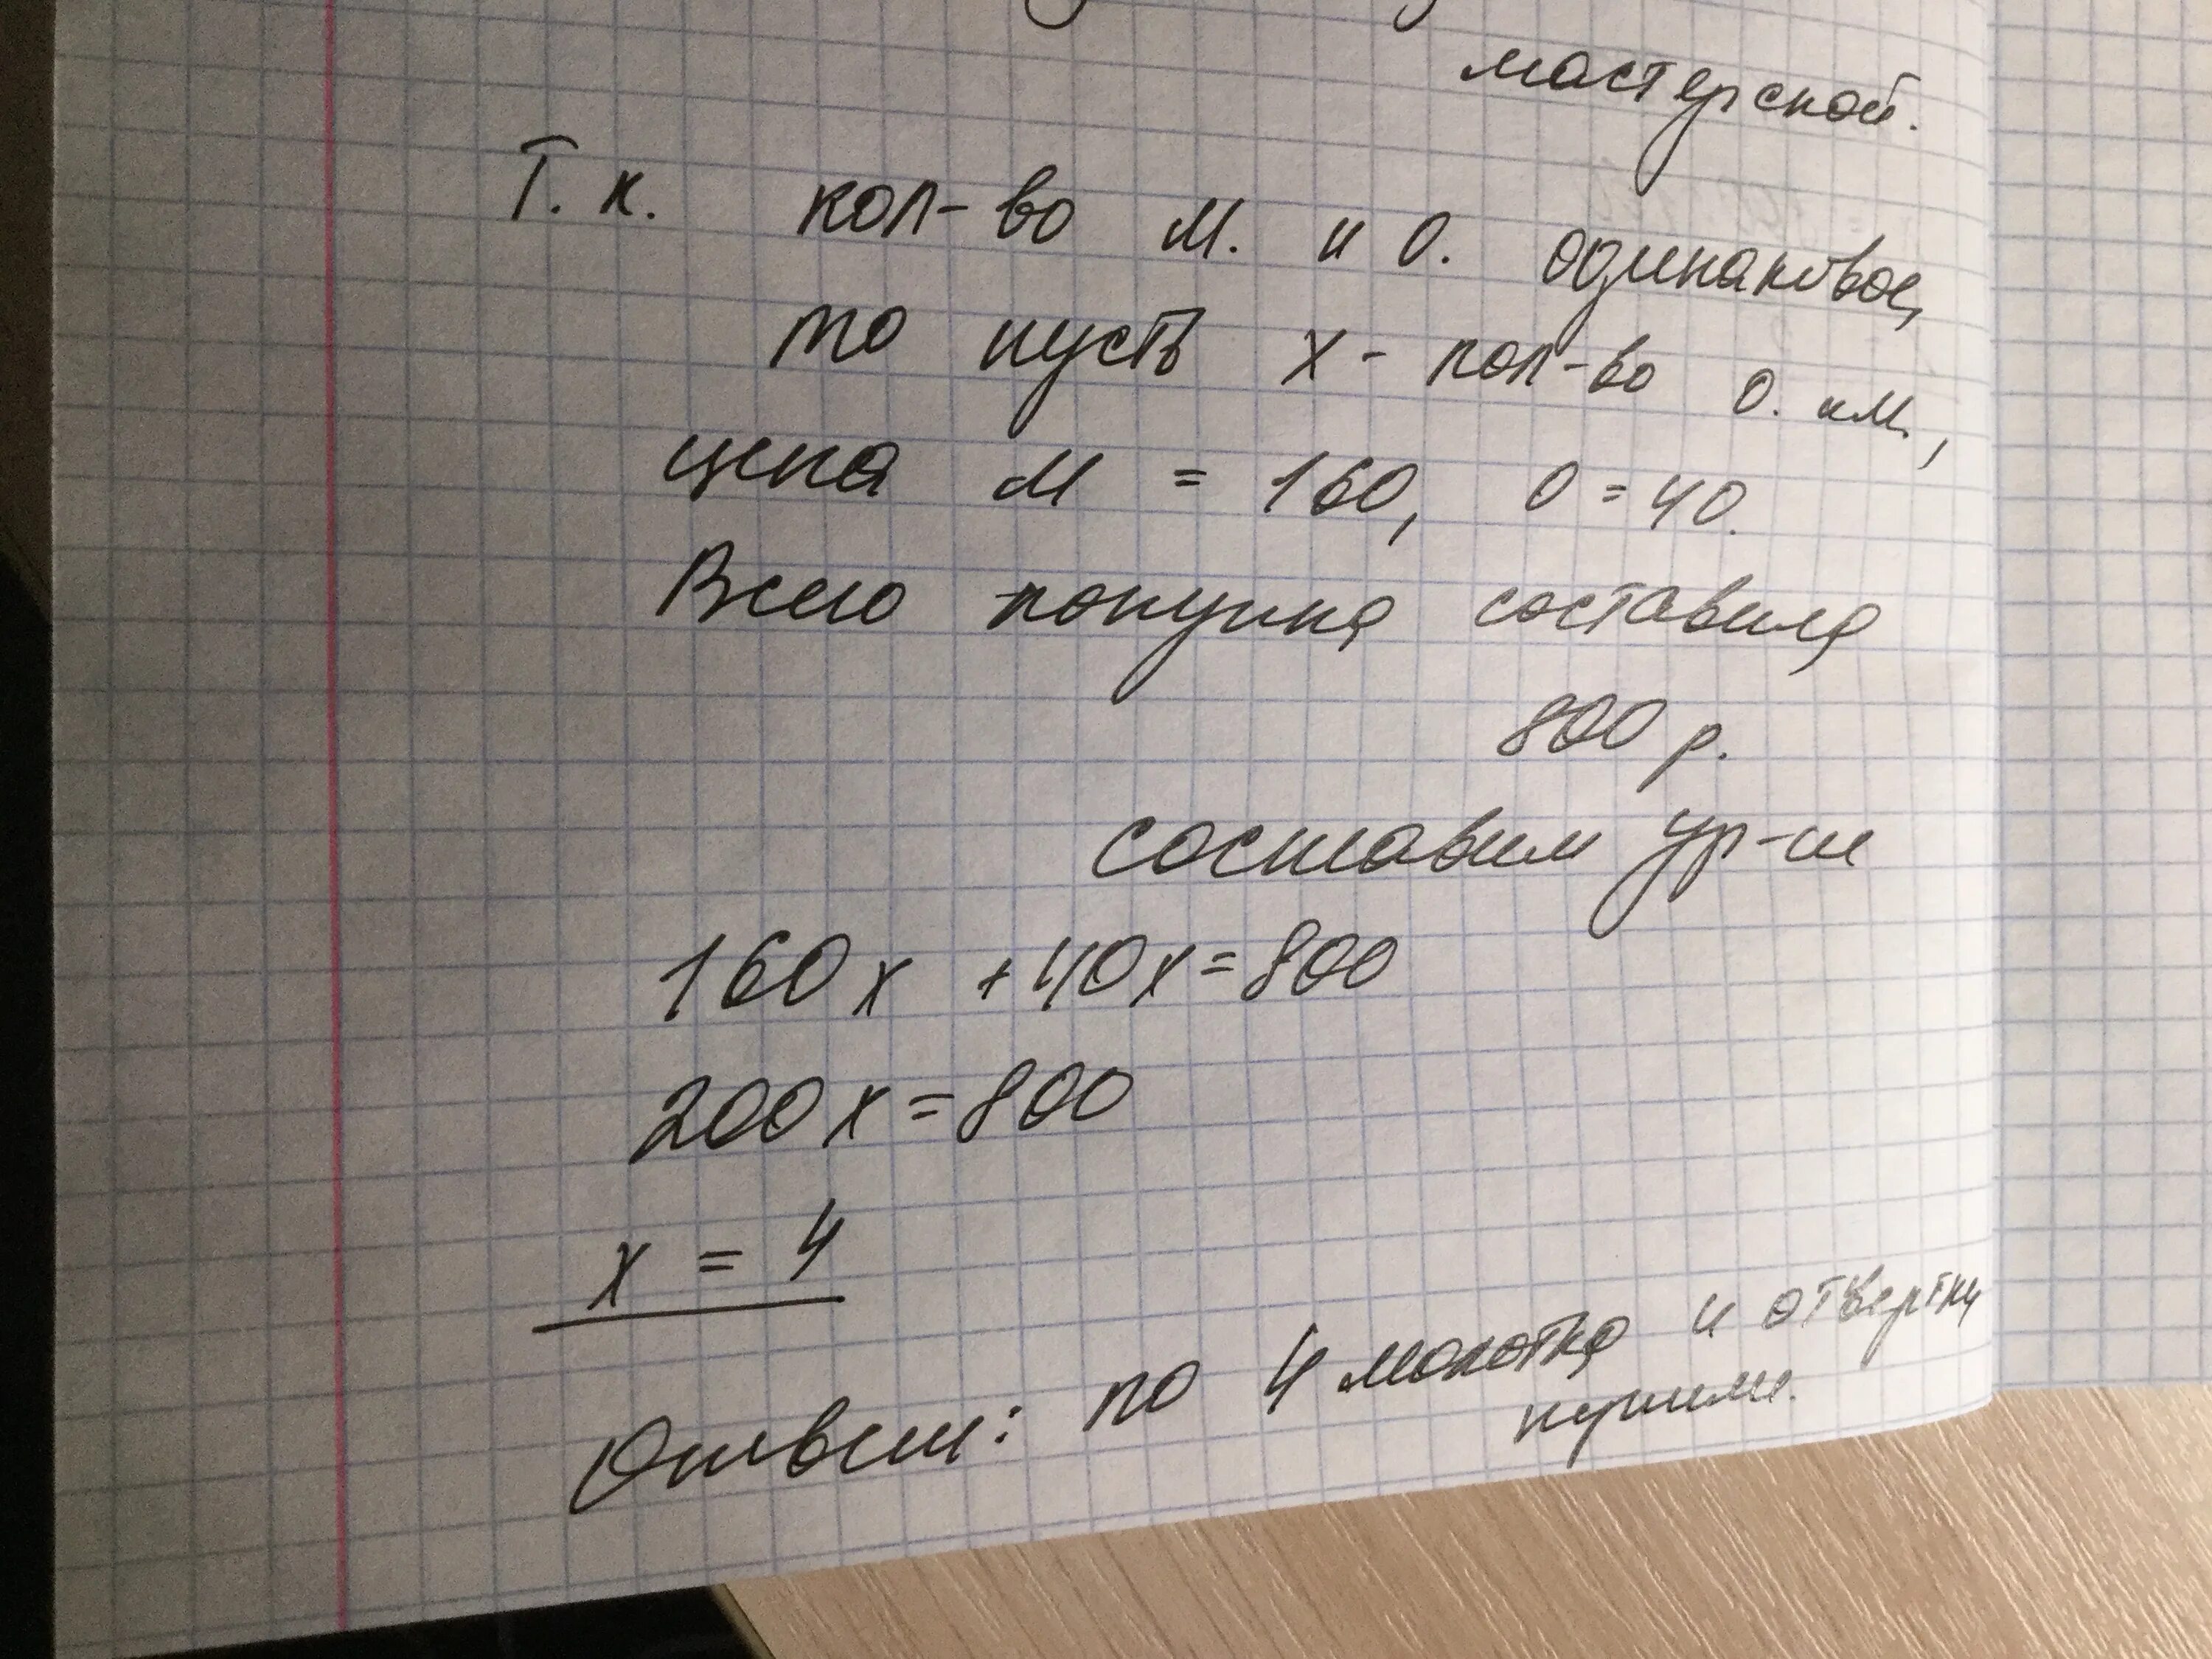 мастерской.
Т. к. кол-во М. и О. одинаковое,
то пусть х - кол-во О. и М.,
цена М = 160, О = 40.
Всего покупка составила
800 р.
составим ур-ие
160х + 40х = 800
200х = 800
х = 4
Ответ: по 4 молотка и отвертки
купили.